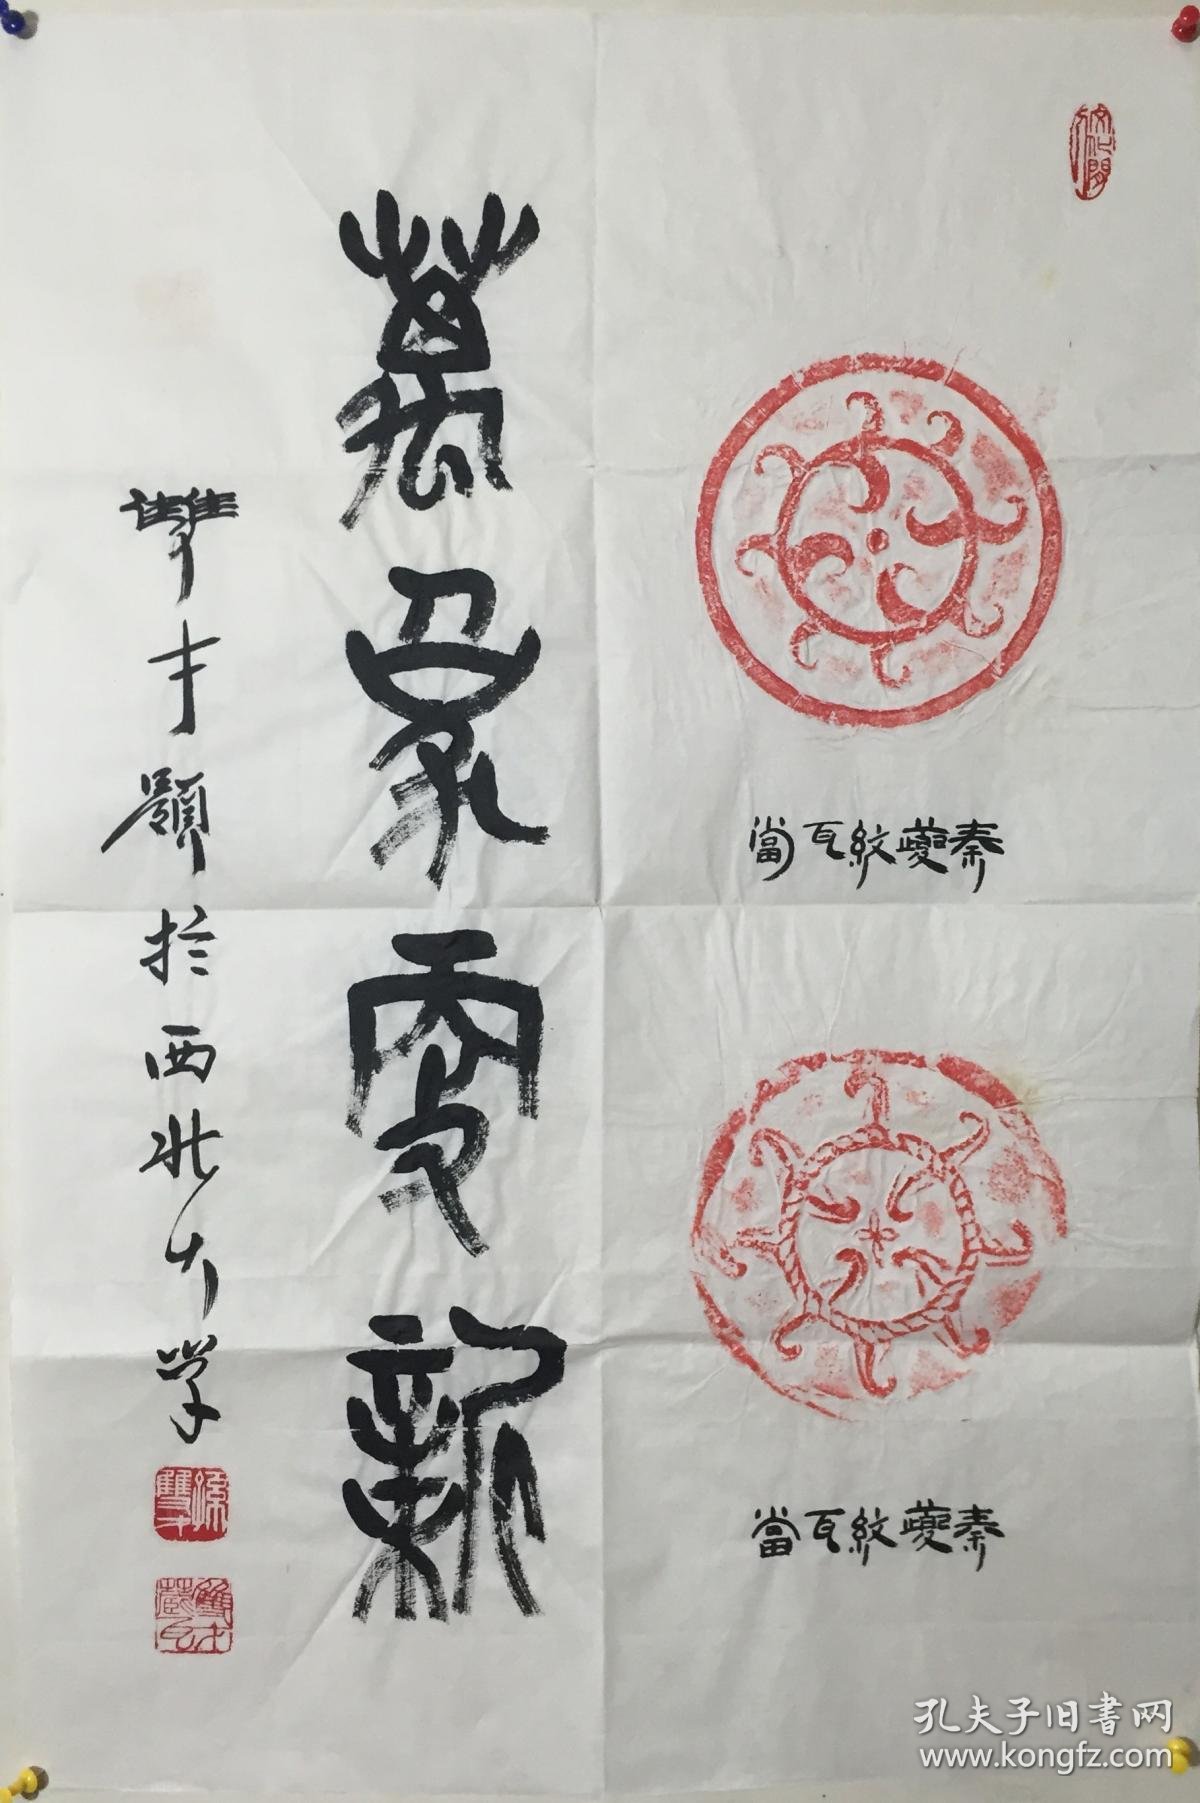 秦夔紋瓦當
秦夔紋瓦當
萬象更新
雙才題於西北大学
孔夫子旧書网
www.kongfz.com